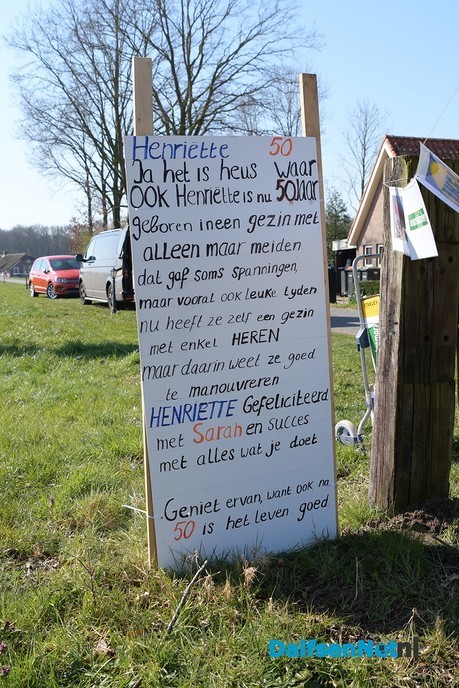 Henriëtte 50
Ja het is heus waar
OOK Henriëtte is nu 50 Jaar
geboren in een gezin met
ALLEEN maar meiden
dat gaf soms spanningen,
maar vooral ook leuke tyden
nu heeft ze zelf een gezin
met enkel HEREN
maar daarin weet ze goed
te manouvreren
HENRIETTE Gefeliciteerd
met Sarah en succes
met alles wat je doet
Geniet ervan, want ook na
50 is het leven goed
DalfsenNet.nl